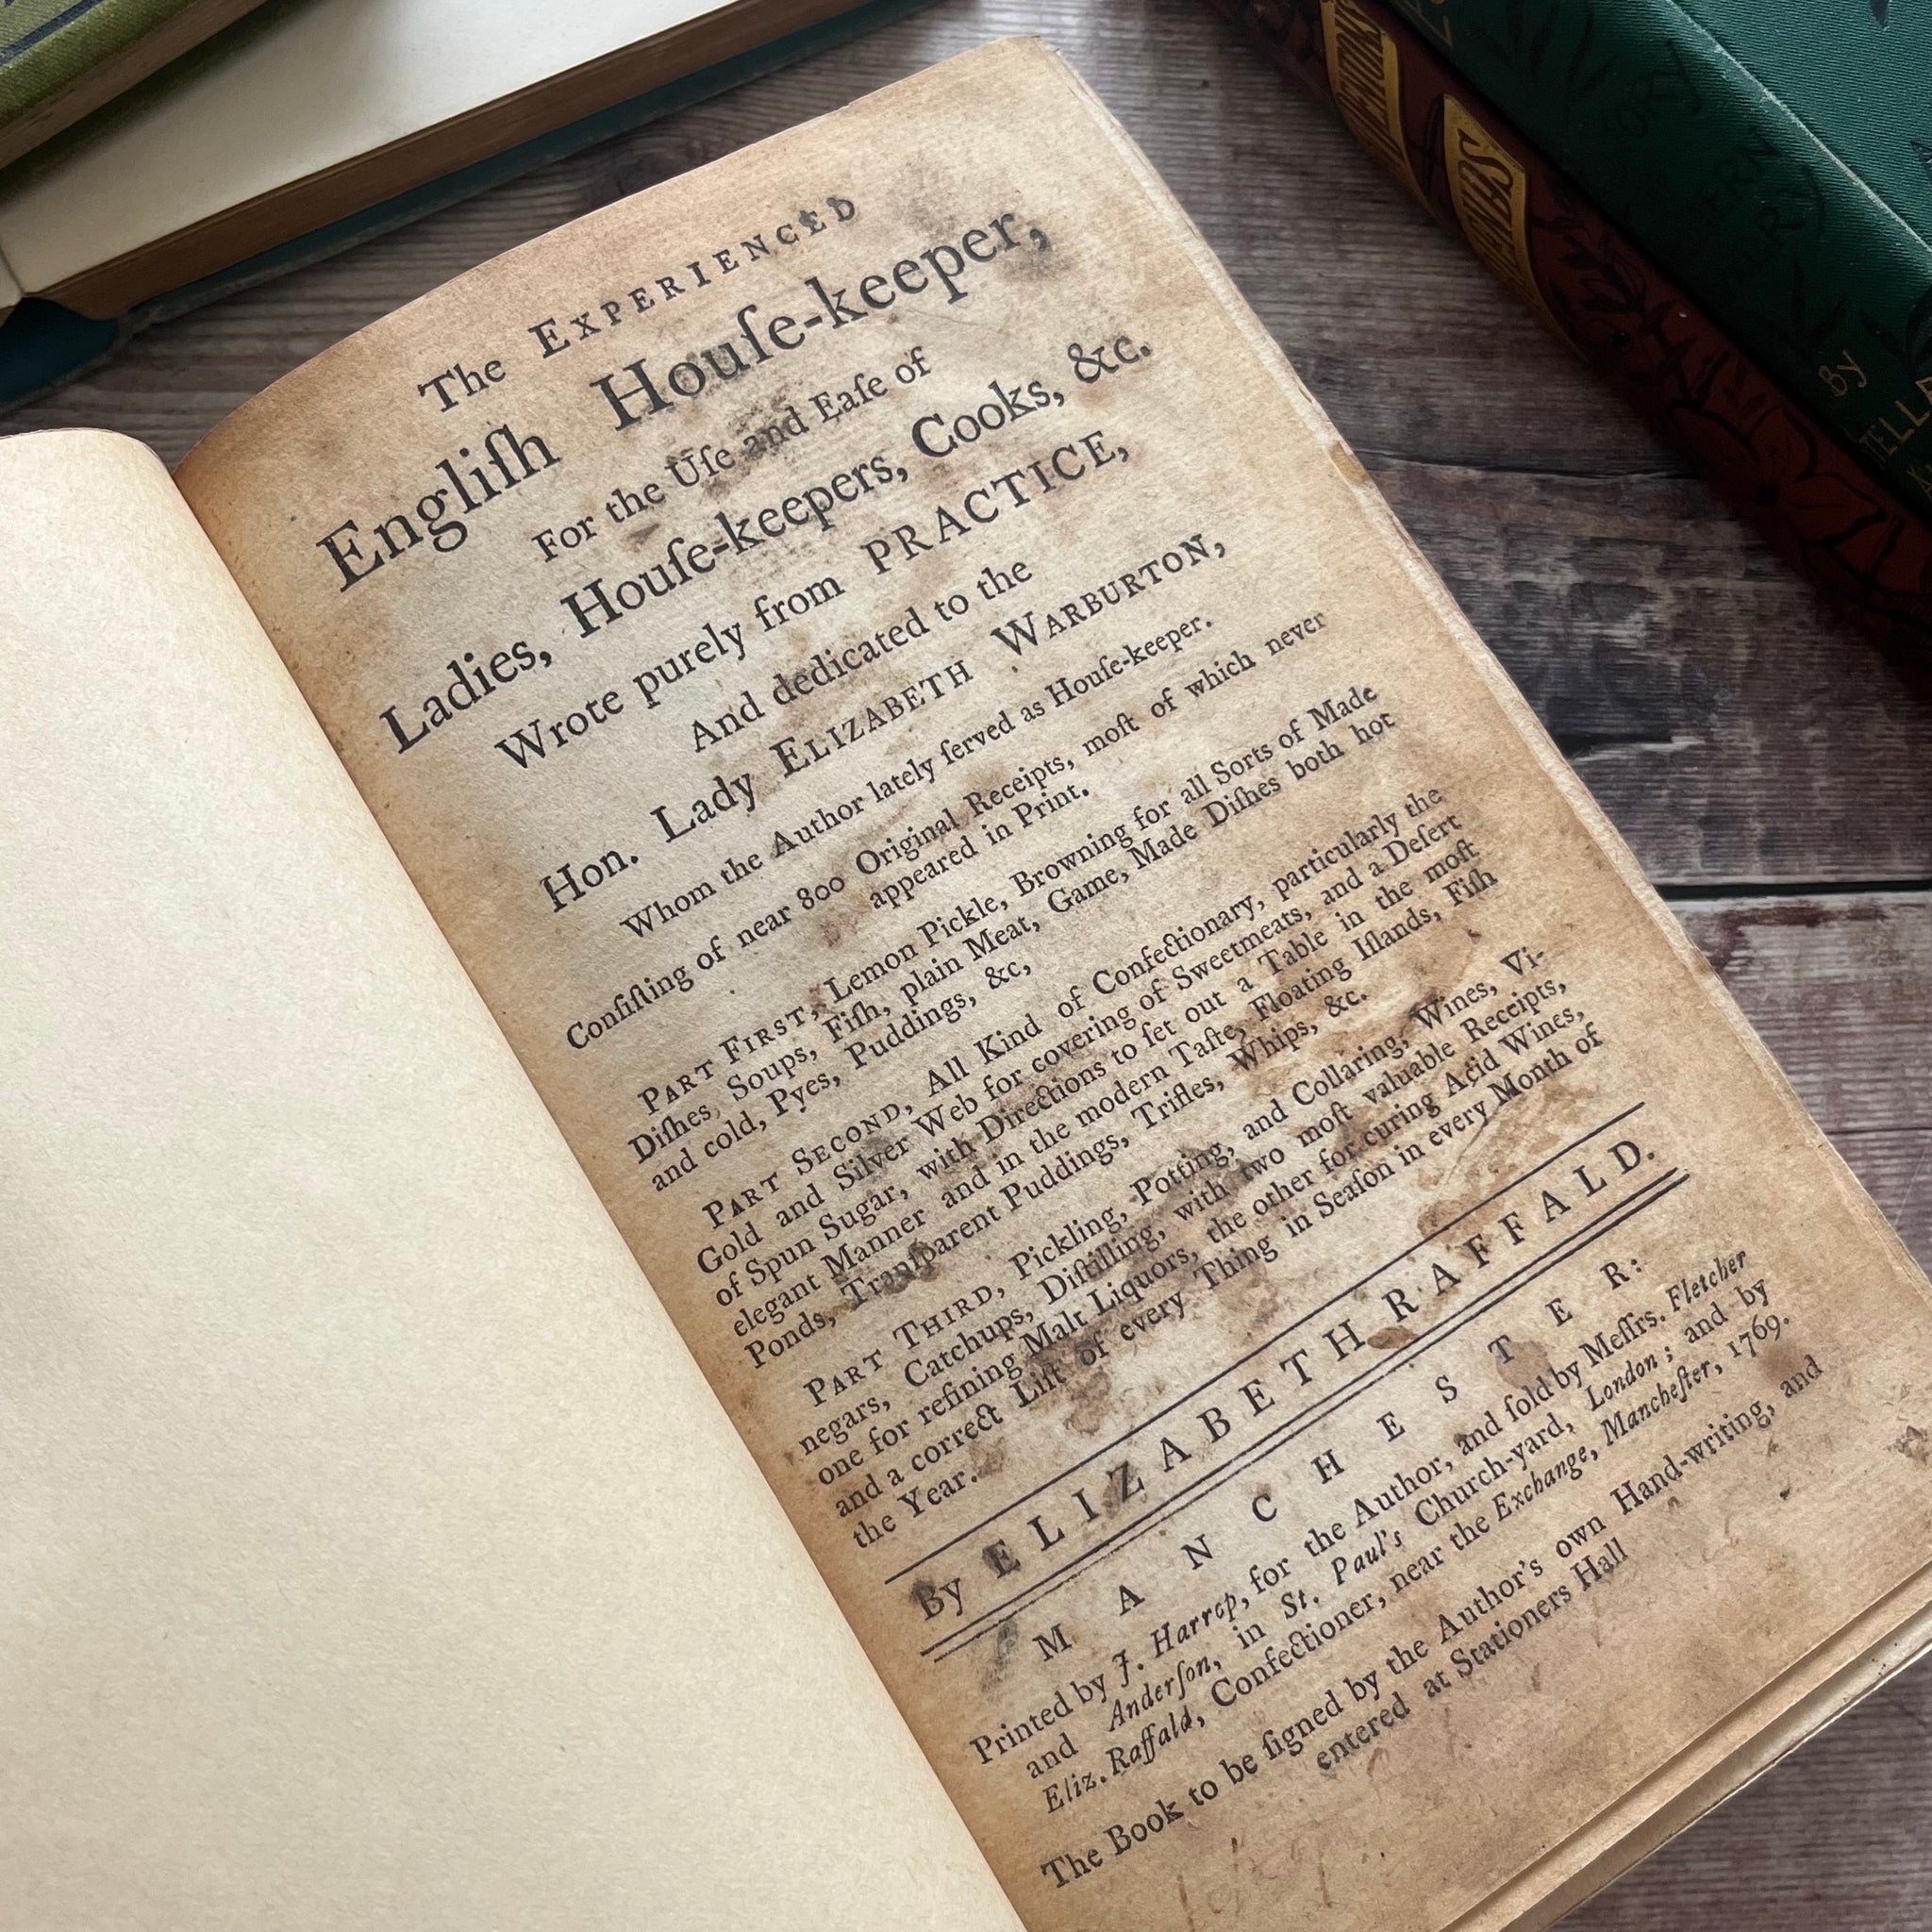 The EXPERIENCED
Engliſh Houſe-keeper,
For the Uſe and Eaſe of
Ladies, Houſe-keepers, Cooks, &c.
Wrote purely from PRACTICE,
And dedicated to the
Hon. Lady ELIZABETH WARBURTON,
Whom the Author lately ſerved as Houſe-keeper.
Conſiſting of near 800 Original Receipts, moſt of which never
appeared in Print.
PART FIRST, Lemon Pickle, Browning for all Sorts of Made
Diſhes, Soups, Fiſh, plain Meat, Game, Made Diſhes both hot
and cold, Pyes, Puddings, &c,
PART SECOND, All Kind of Confectionary, particularly the
Gold and Silver Web for covering of Sweetmeats, and a Deſert
of Spun Sugar, with Directions to ſet out a Table in the moſt
elegant Manner and in the modern Taſte, Floating Iſlands, Fiſh
Ponds, Tranſparent Puddings, Trifles, Whips, &c.
PART THIRD, Pickling, Potting, and Collaring, Wines, Vi-
negars, Catchups, Diſtilling, with two moſt valuable Receipts,
one for refining Malt Liquors, the other for curing Acid Wines,
and a correct Liſt of every Thing in Seaſon in every Month of
the Year.
By ELIZABETH RAFFALD.
MANCHESTER:
Printed by J. Harrop, for the Author, and ſold by Meſſrs. Fletcher
and Anderſon, in St. Paul's Church-yard, London; and by
Eliz. Raffald, Confectioner, near the Exchange, Mancheſter, 1769.
The Book to be ſigned by the Author's own Hand-writing, and
entered at Stationers Hall
By